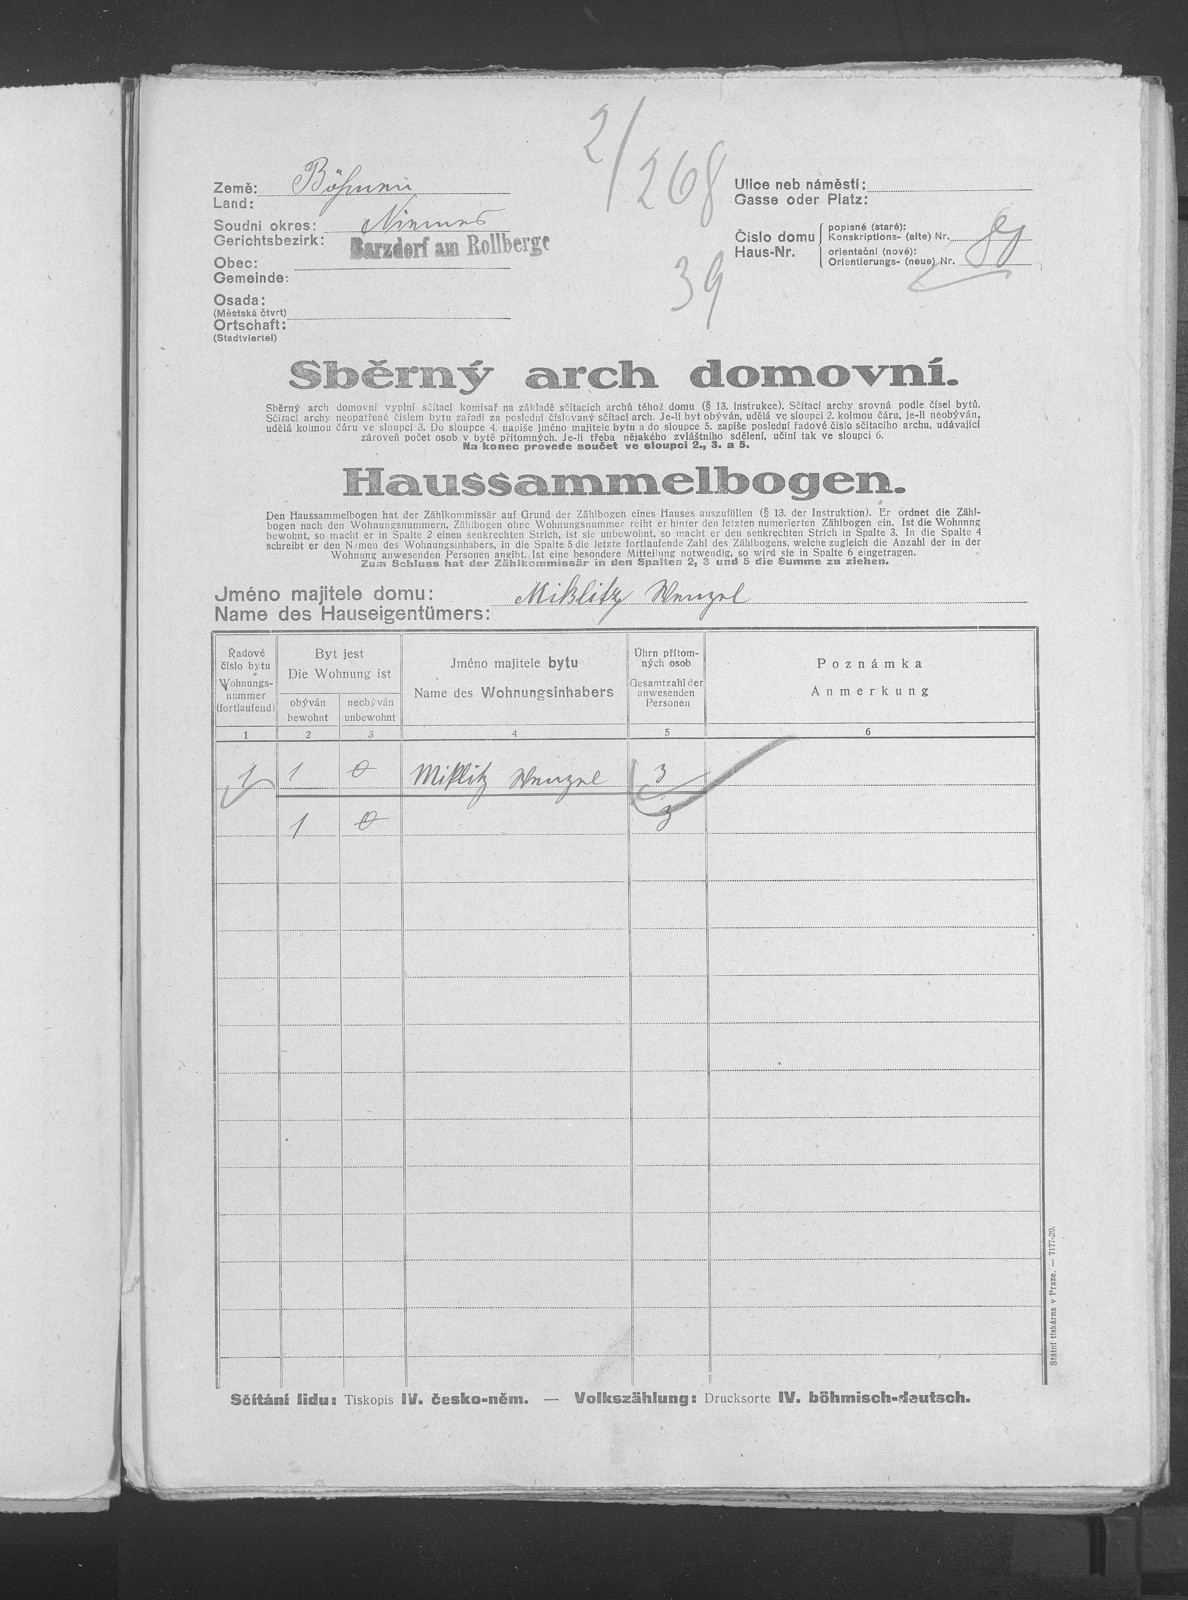 2/268
39
Země: Böhmen
Land:
Soudní okres: Niemes
Gerichtsbezirk:
Barzdorf am Rollberge
Obec:
Gemeinde:
Osada:
(Městská čtvrť)
Ortschaft:
(Stadtviertel)
Ulice neb náměstí:
Gasse oder Platz:
Číslo domu
Haus-Nr.
popisné (staré):
Konskriptions- (alte) Nr.
orientační (nové):
Orientierungs- (neue) Nr.
Sběrný arch domovní.
Sběrný arch domovní vyplní sčítací komisař na základě sčítacích archů téhož domu (§ 13. Instrukce). Sčítací archy srovná podle čísel bytů.
Sčítací archy neopatřené číslem bytu zařadí za poslední číslovaný sčítací arch. Je-li byt obýván, udělá ve sloupci 2. kolmou čáru, je-li neobýván,
udělá kolmou čáru ve sloupci 3. Do sloupce 4. napíše jméno majitele bytu a do sloupce 5. zapíše poslední řadové číslo sčítacího archu, udávající
zároveň počet osob v bytě přítomných. Je-li třeba nějakého zvláštního sdělení, učiní tak ve sloupci 6.
Na konec provede součet ve sloupci 2., 3. a 5.
Haussammelbogen.
Den Haussammelbogen hat der Zählkommissär auf Grund der Zählbogen eines Hauses auszufüllen (§ 13. der Instruktion). Er ordnet die Zähl-
bogen nach den Wohnungsnummern. Zählbogen ohne Wohnungsnummer reiht er hinter den letzten numerierten Zählbogen ein. Ist die Wohnnng
bewohnt, so macht er in Spalte 2 einen senkrechten Strich, ist sie unbewohnt, so macht er den senkrechten Strich in Spalte 3. In die Spalte 4
schreibt er den Namen des Wohnungsinhabers, in die Spalte 5 die letzte fortlaufende Zahl des Zählbogens, welche zugleich die Anzahl der in der
Wohnung anwesenden Personen angibt. Ist eine besondere Mitteilung notwendig, so wird sie in Spalte 6 eingetragen.
Zum Schluss hat der Zählkommissär in den Spalten 2, 3 und 5 die Summe zu ziehen.
Jméno majitele domu: Mißlitz Wenzel
Name des Hauseigentümers:
Řadové číslo bytu
Wohnungs-nummer (fortlaufend)
Byt jest
Die Wohnung ist
obýván
bewohnt
neobýván
unbewohnt
Jméno majitele bytu
Name des Wohnungsinhabers
Úhrn přítom-ných osob
Gesamtzahl der anwesenden Personen
Poznámka
Anmerkung
1 2 3 4 5 6
1 1 0 Mißlitz Wenzel 3
1 0 3
Státní tiskárna v Praze. — 7177-20.
Sčítání lidu: Tiskopis IV. česko-něm. — Volkszählung: Drucksorte IV. böhmisch-deutsch.